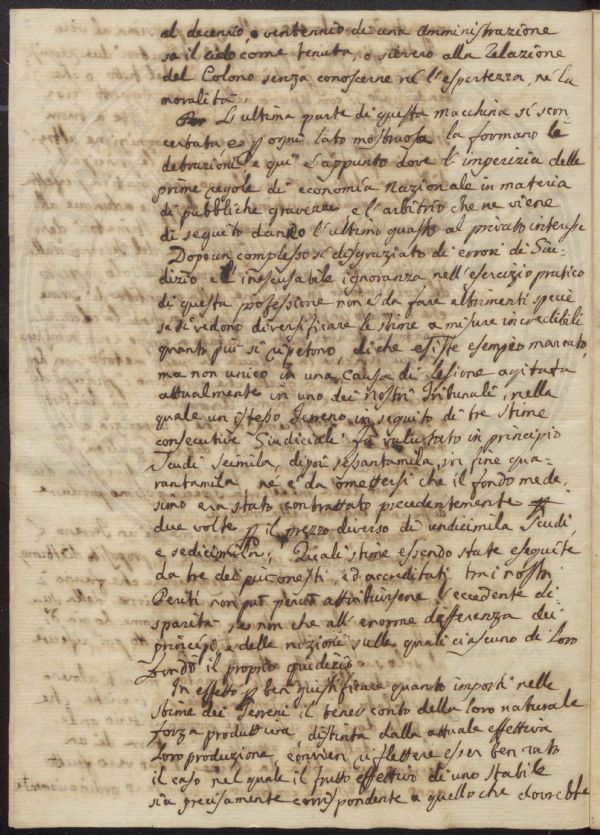 al decennio, o ventennio di una Amministrazione
sa il cielo come tenuta, o sivvero alla Relazione
del Colono senza conoscerne nè l'espertezza, nè la
moralità
L'ultima parte di questa macchina sì scon
certata e p ogni lato mostruosa la formano le
detrazioni e quì è appunto dove l'imperizia delle
prime regole di economia Nazionale in materia
di pubbliche gravezze e l'arbitrio che ne viene
di seguito danno l'ultimo guasto al privato interesse
Dopo un complesso sì disgraziato di errori di Giu-
dizio e l'inescusabile ignoranza nell'esercizio pratico
di questa professione non è da fare altrimenti specie
se si vedono diversificare le stime a misure incredibili
quanto più si ripetono, di che esiste esempio marcato,
ma non unico in una Causa di lesione agitata
attualmente in uno dei nostri Tribunali, nella
quale un istesso Terreno in seguito di tre stime
consecutive Giudiciali fù valutato in principio
Scudi seimila, dipoi sessantamila, in fine qua-
rantamila nè è da omettersi che il fondo mede-
simo era stato contrattato precedentemente
due volte p il prezzo diverso di undicimila Scudi,
e sedicimila; Quali stime essendo state eseguite
da tre dei più onesti, ed accreditati tra i nostri
Periti non può perciò attribuirsene l'eccedente di-
sparità se non che all'enorme differenza dei
principj e delle nozioni sulle quali ciascuno di loro
fondò il proprio giudizio
In effetto p ben giustificare quanto importi nelle
stime dei Terreni il tener conto della loro naturale
forza produttiva, distinta dalla attuale effettiva
loro produzione, convien riflettere esser ben rato
il caso nel quale il frutto effettivo di uno stabile
sia precisamente corrispondente a quello che dovrebbe